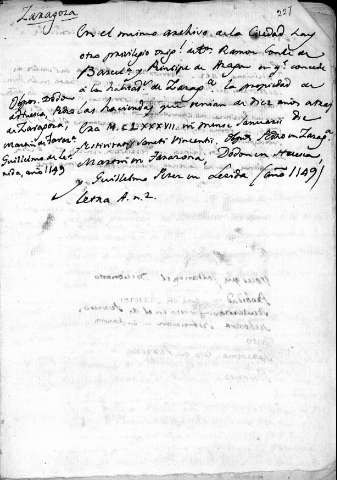 Zaragoza
227
En el mismo archivo de la Ciudad hay
otro privilegio orig.l de Dn Ramon Conde de
Barcel.a y Principe de Aragon en q.e concede
á la de Zarag.a la propiedad de
las haciendas que tenian de diez años atras
Era M.CLXXXVII. in mense Januarii die
festivitatis Sancti Vincentii. Obpos Pedro en Zarag.a
Martin en Tarazona, Dodon en Huesca,
y Guillelmo Perez en Lerida (año 1149)
Letra A. n. 2.
Obpos. Dodon
de Huesca, Pedro
de Zaragoza,
Martin de Taraz.a
Guillelmo de Le-
rida, año 1149